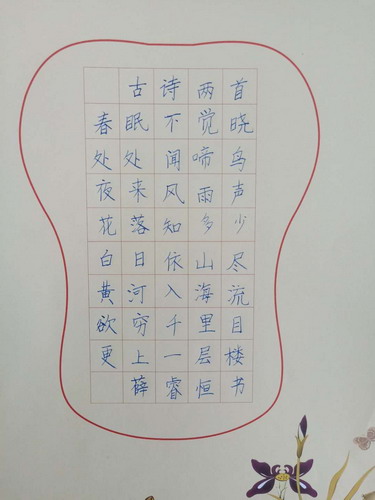 古诗两首
春眠不觉晓
处处闻啼鸟
夜来风雨声
花落知多少
白日依山尽
黄河入海流
欲穷千里目
更上一层楼
薛睿恒书